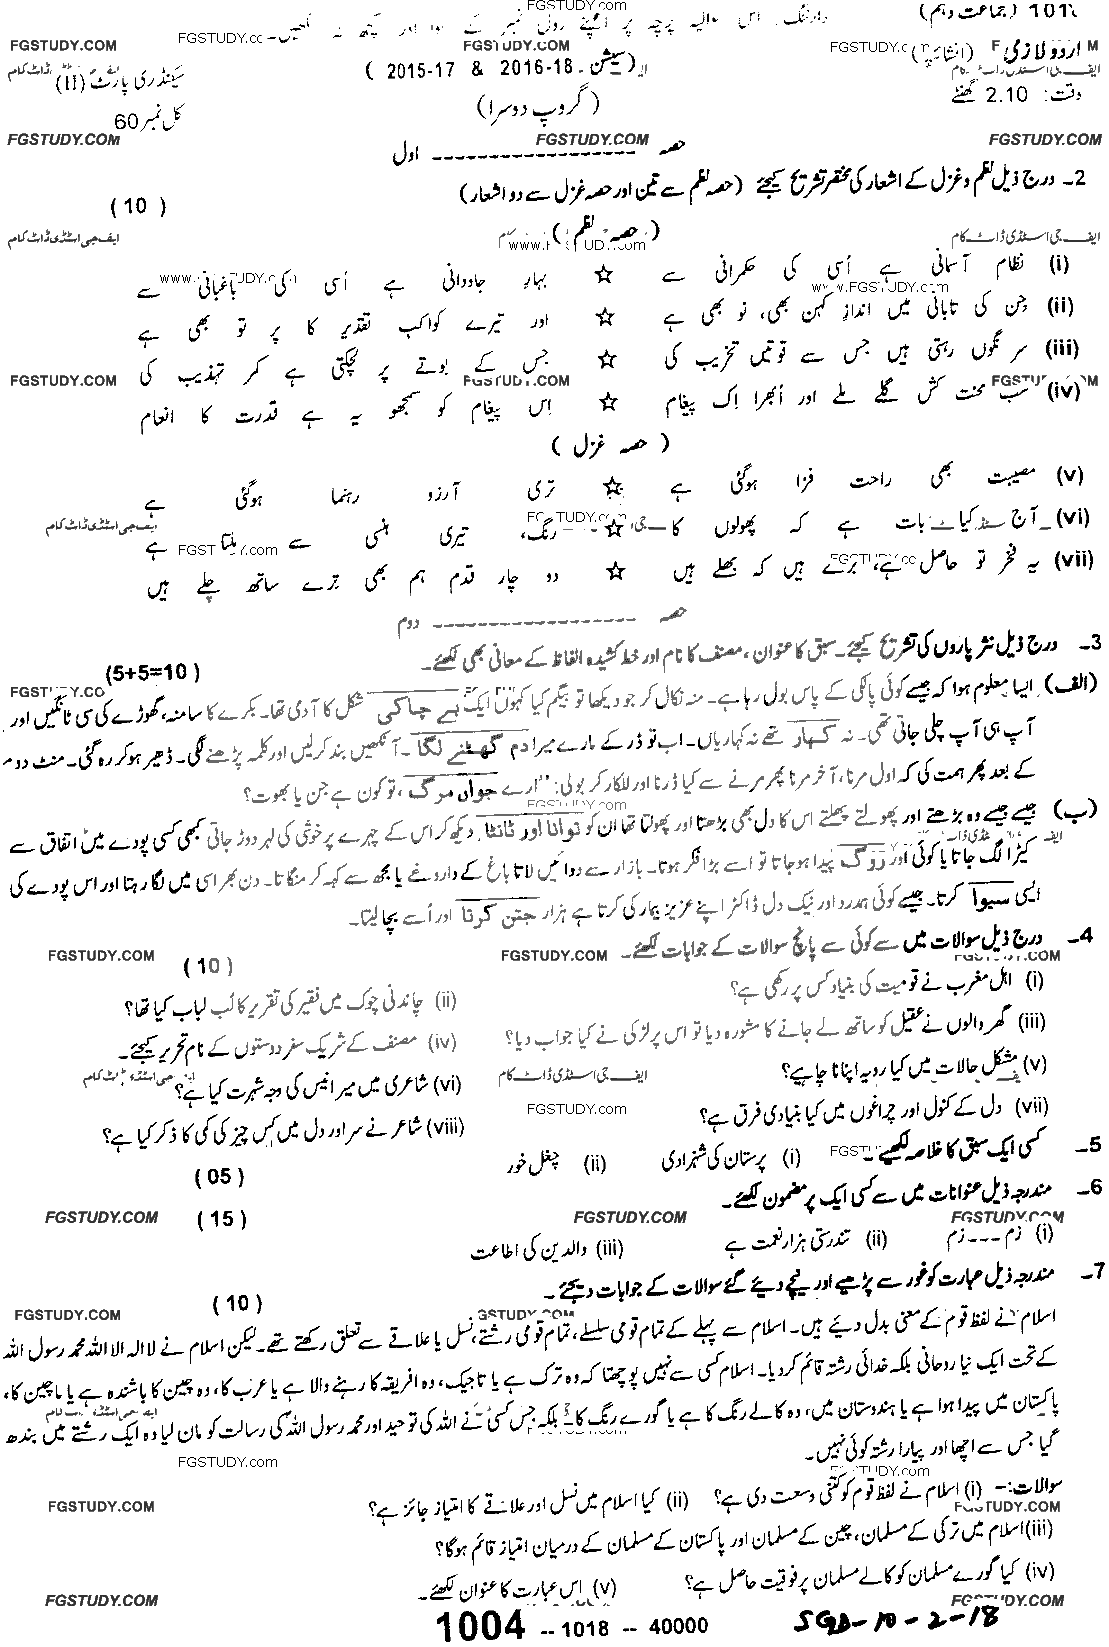 FGSTUDY.COM
وارننگ: اس سوالیہ پرچہ پر اپنے رولنمبر کے سوا اور کچھ نہ لکھیں۔ (جماعت دہم)
FGSTUDY.COM FGSTUDY.COM
اردو لازمی (انشائیہ) (سیشن۔ 18-2016 & 17-2015) سیکنڈری پارٹ (II)
وقت: 2.10 گھنٹے (گروپ دوسرا) کل نمبر 60
FGSTUDY.COM FGSTUDY.COM FGSTUDY.COM
حصہ ------------------- اول
2۔ درج ذیل نظم و غزل کے اشعار کی مختصر تشریح کیجئے (حصہ نظم سے تین اور حصہ غزل سے دو اشعار) (10)
ایف جی اسٹڈی ڈاٹ کام ایف جی اسٹڈی ڈاٹ کام
(حصہ نظم)
(i) نظام آسمانی ہے اُسی کی حکمرانی سے ☆ بہارِ جاودانی ہے اُسی کی باغبانی سے
(ii) جن کی تابانی میں اندازِ کہن بھی، نو بھی ہے ☆ اور تیرے کواکب تقدیر کا پر تو بھی ہے
(iii) سرنگوں رہتی ہیں جس سے قوتیں تخریب کی ☆ جس کے بوتے پر لچکتی ہے کمر تہذیب کی
FGSTUDY.COM FGSTUDY.COM FGSTUDY.COM
(iv) سب محنت کش گلے ملے اور اُبھرا اِک پیغام ☆ اِس پیغام کو سمجھو یہ ہے قدرت کا انعام
(حصہ غزل)
(v) مصیبت بھی راحت فزا ہوگئی ہے ☆ تری آرزو رہنما ہوگئی ہے
(vi) آج کیا بات ہے کہ پھولوں کا ☆ رنگ، تیری ہنسی سے ملتا ہے
(vii) یہ فخر تو حاصل ہے، برے ہیں کہ بھلے ہیں ☆ دو چار قدم ہم بھی ترے ساتھ چلے ہیں
حصہ ------------------- دوم
3۔ درج ذیل نثر پاروں کی تشریح کیجئے۔ سبق کا عنوان، مصنف کا نام اور خط کشیدہ الفاظ کے معانی بھی لکھئے۔ (5+5=10)
(الف) ایسا معلوم ہوا کہ جیسے کوئی پالکی کے پاس بول رہا ہے۔ منہ نکال کر جو دیکھا تو بیگم کیا کہوں ایک بے چاکی شکل کا آدمی تھا۔ بکرے کا سامنہ، گھوڑے کی سی ٹانگیں اور
آپ ہی آپ چلی جاتی تھی۔ نہ کہار تھے نہ کہاریاں۔ اب تو ڈر کے مارے میرا دم گھٹنے لگا۔ آنکھیں بند کر لیں اور کلمہ پڑھنے لگی۔ ڈھیر ہو کر رہ گئی۔ منٹ دو م
کے بعد پھر ہمت کی کہ اول مرنا، آخر مرنا پھر مرنے سے کیا ڈرنا اور للکار کر بولی: "ارے جواں مرگ، تو کون ہے جن یا بھوت؟
(ب) جیسے جیسے وہ بڑھتے اور پھولتے پھلتے اس کا دل بھی بڑھتا اور پھولتا تھا ان کو توانا اور ٹانٹا دیکھ کر اس کے چہرے پر خوشی کی لہر دوڑ جاتی کبھی کسی پودے میں اتفاق سے
کیڑا لگ جاتا یا کوئی اور روگ پیدا ہو جاتا تو اسے بڑا فکر ہوتا۔ بازار سے دوائیں لاتا باغ کے داروغے یا مجھ سے کہہ کر منگاتا۔ دن بھر اسی میں لگا رہتا اور اس پودے کی
ایسی سیوا کرتا۔ جیسے کوئی ہمدرد اور نیک دل ڈاکٹر اپنے عزیز بیمار کی کرتا ہے ہزار جتن کرتا اور اُسے بچا لیتا۔
4۔ درج ذیل سوالات میں سے کوئی سے پانچ سوالات کے جوابات لکھئے۔ (10)
FGSTUDY.COM FGSTUDY.COM FGSTUDY.COM
(i) اہل مغرب نے قومیت کی بنیاد کس پر رکھی ہے؟ (ii) چاندنی چوک میں فقیر کی تقریر کا لُب لباب کیا تھا؟
(iii) گھر والوں نے عقیل کو ساتھ لے جانے کا مشورہ دیا تو اس پر لڑکی نے کیا جواب دیا؟ (iv) مصنف کے شریک سفر دوستوں کے نام تحریر کیجئے۔
(v) مشکل حالات میں کیا رویہ اپنانا چاہیے؟ (vi) شاعری میں میر انیس کی وجہ شہرت کیا ہے؟
(vii) دل کے کنول اور چراغوں میں کیا بنیادی فرق ہے؟ FGSTUDY.com (viii) شاعر نے سر اور دل میں کس چیز کی کمی کا ذکر کیا ہے؟
5۔ کسی ایک سبق کا خلاصہ لکھیے۔ (i) پرستان کی شہزادی (ii) چغل خور (05)
6۔ مندرجہ ذیل عنوانات میں سے کسی ایک پر مضمون لکھئے۔ (15)
FGSTUDY.COM FGSTUDY.COM FGSTUDY.COM
(i) زم --- زم (ii) تندرستی ہزار نعمت ہے (iii) والدین کی اطاعت
7۔ مندرجہ ذیل عبارت کو غور سے پڑھیے اور نیچے دیئے گئے سوالات کے جوابات دیجئے۔ (10)
FGSTUDY.COM FGSTUDY.COM
اسلام نے لفظ قوم کے معنی بدل دیئے ہیں۔ اسلام سے پہلے کے تمام قومی سلسلے، تمام قومی رشتے، نسل یا علاقے سے تعلق رکھتے تھے۔ لیکن اسلام نے لا الہ الا اللہ محمد رسول اللہ
کے تحت ایک نیا روحانی بلکہ خدائی رشتہ قائم کر دیا۔ اسلام کسی سے نہیں پوچھتا کہ وہ ترک ہے یا تاجیک، وہ افریقہ کا رہنے والا ہے یا عرب کا، وہ چین کا باشندہ ہے یا ماچین کا،
پاکستان میں پیدا ہوا ہے یا ہندوستان میں، وہ کالے رنگ کا ہے یا گورے رنگ کا؟ بلکہ جس کسی نے اللہ کی توحید اور محمد رسول اللہ کی رسالت کو مان لیا وہ ایک رشتے میں بندھ
گیا جس سے اچھا اور پیارا رشتہ کوئی نہیں۔
FGSTUDY.com FGSTUDY.com
سوالات:- (i) اسلام نے لفظ قوم کو کتنی وسعت دی ہے؟ (ii) کیا اسلام میں نسل اور علاقے کا امتیاز جائز ہے؟
FGSTUDY.COM FGSTUDY.COM
(iii) اسلام میں ترکی کے مسلمان، چین کے مسلمان اور پاکستان کے مسلمان کے درمیان امتیاز قائم ہوگا؟
(iv) کیا گورے مسلمان کو کالے مسلمان پر فوقیت حاصل ہے؟ (v) اِس عبارت کا عنوان لکھئے۔
FGSTUDY.COM FGSTUDY.COM
1004 -- 1018 -- 40000 SGD-10-2-18